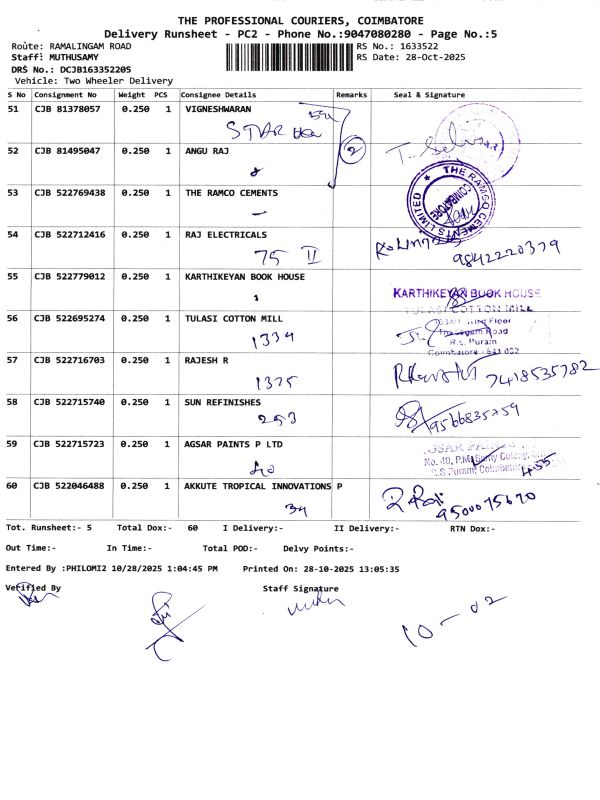 THE PROFESSIONAL COURIERS, COIMBATORE
Delivery Runsheet - PC2 - Phone No.:9047080280 - Page No.:5
Route: RAMALINGAM ROAD RS No.: 1633522
Staff: MUTHUSAMY RS Date: 28-Oct-2025
DRS No.: DCJB163352205
Vehicle: Two Wheeler Delivery
S No Consignment No Weight PCS Consignee Details Remarks Seal & Signature
51 CJB 81378057 0.250 1 VIGNESHWARAN
STAR
52 CJB 81495047 0.250 1 ANGU RAJ 2
53 CJB 522769438 0.250 1 THE RAMCO CEMENTS
THE RAMCO CEMENTS LIMITED
COIMBATORE
54 CJB 522712416 0.250 1 RAJ ELECTRICALS
75 II 9842220379
55 CJB 522779012 0.250 1 KARTHIKEYAN BOOK HOUSE
KARTHIKEYAN BOOK HOUSE
56 CJB 522695274 0.250 1 TULASI COTTON MILL
TULASI COTTON MILL
Floor
Road
R.S. Puram
Coimbatore - 641 002
1334
57 CJB 522716703 0.250 1 RAJESH R
1375 7418535782
58 CJB 522715740 0.250 1 SUN REFINISHES
253 9566835759
59 CJB 522715723 0.250 1 AGSAR PAINTS P LTD
No. 40, P.M. Samy Colony,
R.S. Puram, Coimbatore
40 455
60 CJB 522046488 0.250 1 AKKUTE TROPICAL INNOVATIONS P
34 9500075670
Tot. Runsheet:- 5 Total Dox:- 60 I Delivery:- II Delivery:- RTN Dox:-
Out Time:- In Time:- Total POD:- Delvy Points:-
Entered By :PHILOMI2 10/28/2025 1:04:45 PM Printed On: 28-10-2025 13:05:35
Verified By Staff Signature
10-02